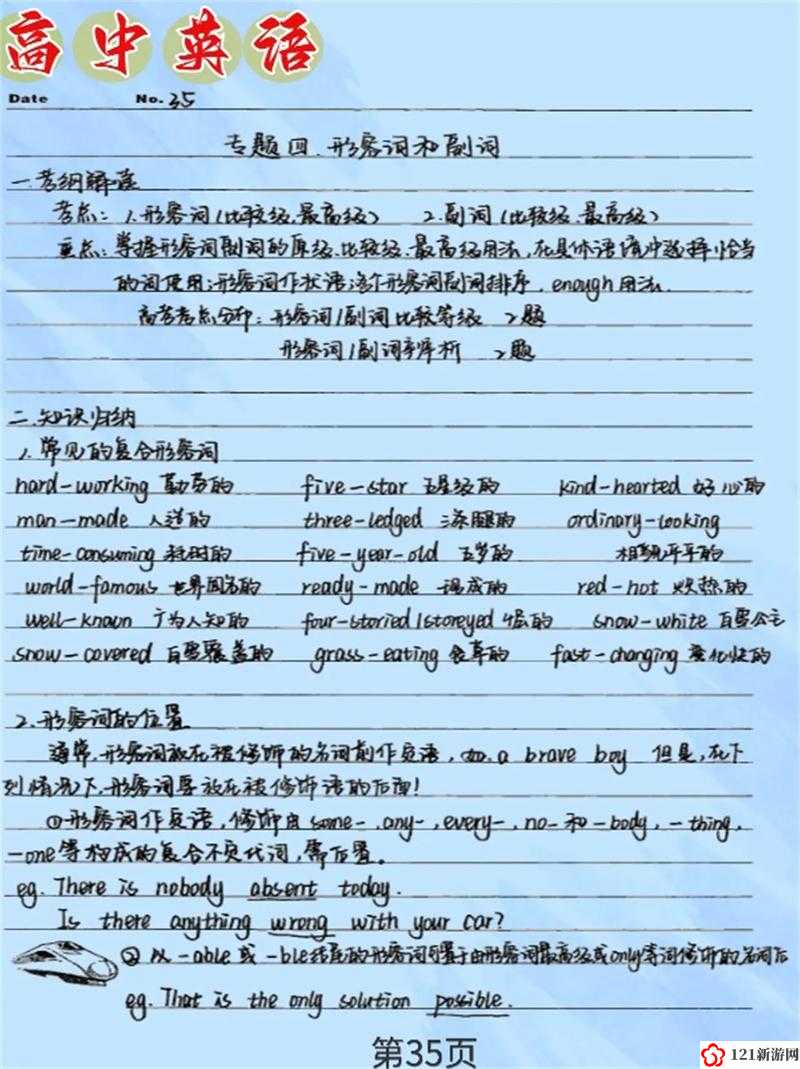 高中英语
Date No. 35
专题四.形容词和副词
一.考纲解读
考点: 1.形容词(比较级.最高级) 2.副词(比较级.最高级)
重点: 掌握形容词副词的原级.比较级.最高级用法,在具体语境中选择恰当
的词使用;形容词作状语;多个形容词副词排序,enough用法.
高考考点分布: 形容词/副词比较等级 2题
形容词/副词辨析 2题
二.知识归纳
1.常见的复合形容词
hard-working 勤劳的 five-star 五星级的 kind-hearted 好心的
man-made 人造的 three-legged 三条腿的 ordinary-looking
time-consuming 耗时的 five-year-old 五岁的 相貌平平的
world-famous 世界闻名的 ready-made 现成的 red-hot 炽热的
well-known 广为人知的 four-storied/storeyed 4层的 snow-white 白雪公主
snow-covered 白雪覆盖的 grass-eating 食草的 fast-changing 变化快的
2.形容词的位置
通常,形容词放在被修饰的名词前作定语,如.a brave boy 但是,在下
列情况下,形容词要放在被修饰语的后面!
①形容词作定语,修饰由some-,any-,every-,no-和-body,-thing,
-one等构成的复合不定代词,需后置。
eg. There is nobody absent today.
Is there anything wrong with your car?
② 以-able或-ble结尾的形容词可置于由形容词最高级或only等词修饰的名词后
eg. That is the only solution possible.
第35页
121新游网